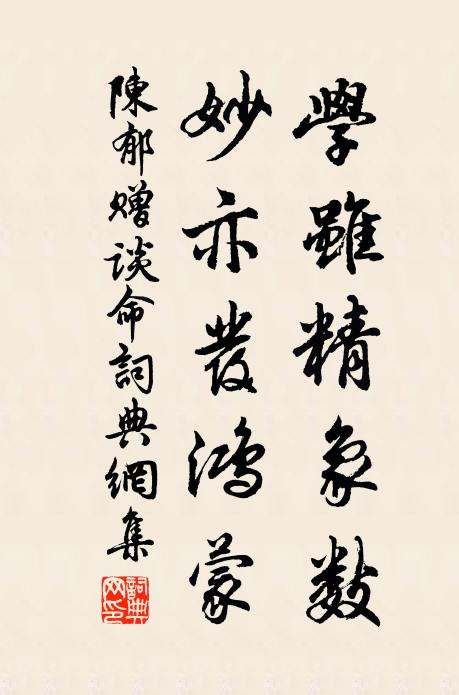 學雖精象數
妙亦發鴻蒙
陳郁贈談命詞典網集
詞典网印